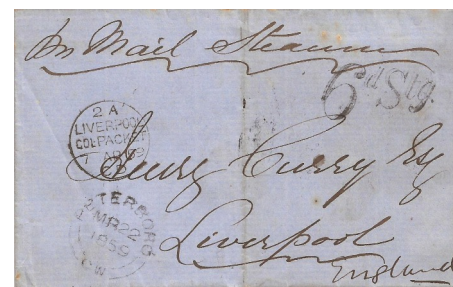 Per Mail Steamer
6d Stg.
2 A
LIVERPOOL
COL PACKET
AP
Henry Curry Esq
TERBORO
MR 22
1859
C W
Liverpool
England